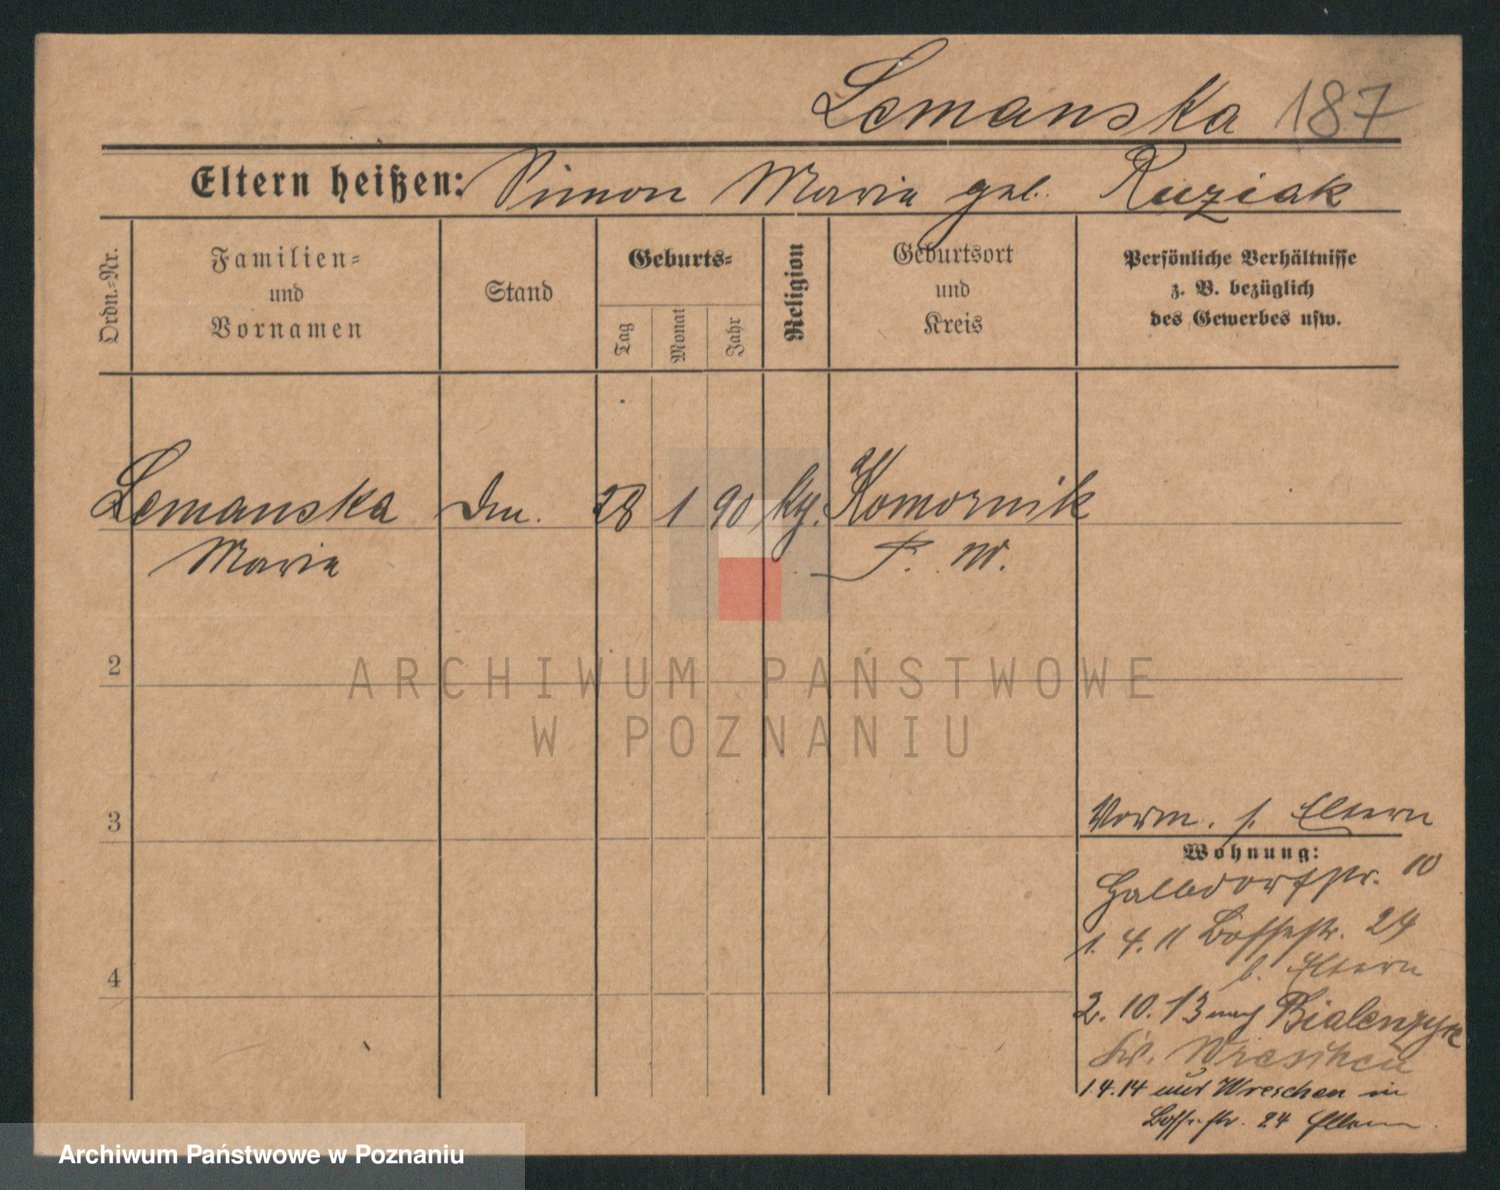 Lemanska 187
Eltern heißen: Simon Maria geb. Ruziak
Ordn.-Nr.
Familien-
und
Vornamen
Stand
Geburts-
Tag
Monat
Jahr
Religion
Geburtsort
und
Kreis
Persönliche Verhältnisse
z. B. bezüglich
des Gewerbes usw.
Lemanska Dm. 28 1 90 kg. Komornik
Maria P. W.
2
ARCHIWUM PAŃSTWOWE
W POZNANIU
3
Vorm. s. Eltern
Wohnung:
Halbdorfstr. 10
1. 4. 11 Bosestr. 24
b. Eltern
4
2. 10. 13 nach
Kr. Wreschen
1.4.14 aus Wreschen in
str. 24 Eltern
Archiwum Państwowe w Poznaniu